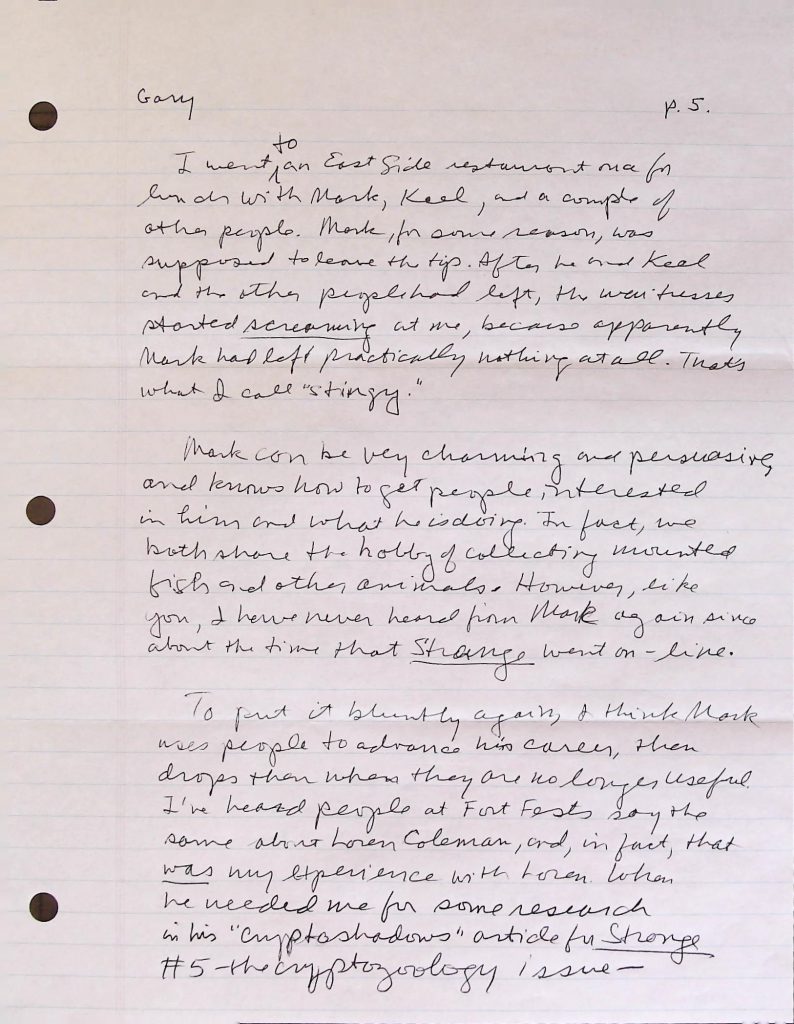 Gary p. 5.
to
I went an East Side restaurant once for
lunch with Mark, Keel, and a couple of
other people. Mark, for some reason, was
supposed to leave the tip. After he and Keel
and the other people had left, the waitresses
started screaming at me, because apparently
Mark had left practically nothing at all. That's
what I call "stingy."
Mark can be very charming and persuasive,
and knows how to get people interested
in him and what he is doing. In fact, we
both share the hobby of collecting mounted
fish and other animals. However, like
you, I have never heard from Mark again since
about the time that Strange went on-line.
To put it bluntly again, I think Mark
uses people to advance his career, then
drops them when they are no longer useful.
I've heard people at Fort Fests say the
same about Loren Coleman, and, in fact, that
was my experience with Loren. When
he needed me for some research
in his "cryptoshadows" article for Strange
#5 - the cryptozoology issue -